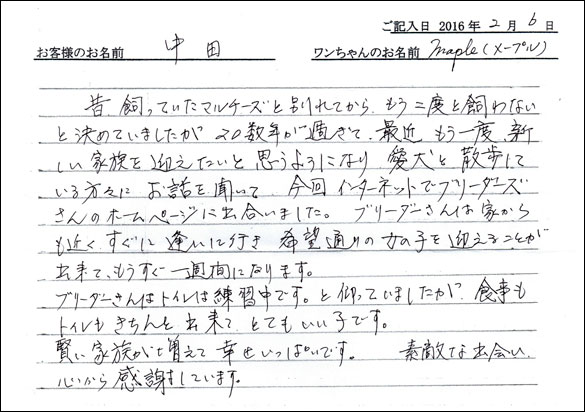 ご記入日 2016年 2月 6日
お客様のお名前 中田 ワンちゃんのお名前 maple(メープル)
昔、飼っていたマルチーズと別れてから、もう二度と飼わない
と決めていましたが 20数年が過ぎて、最近 もう一度、新
しい家族を迎えたいと思うようになり 愛犬と散歩して
いる方々に お話を聞いて、今回 インターネットでブリーダーズ
さんのホームページに出合いました。 ブリーダーさんは家から
も近く、すぐに逢いに行き 希望通りの女の子を迎えることが
出来て、もうすぐ一週間になります。
ブリーダーさんはトイレは練習中です。と仰っていましたが、食事も
トイレも きちんと 出来て とてもいい子です。
賢い家族が増えて 幸せいっぱいです。 素敵な出会い、
心から感謝しています。